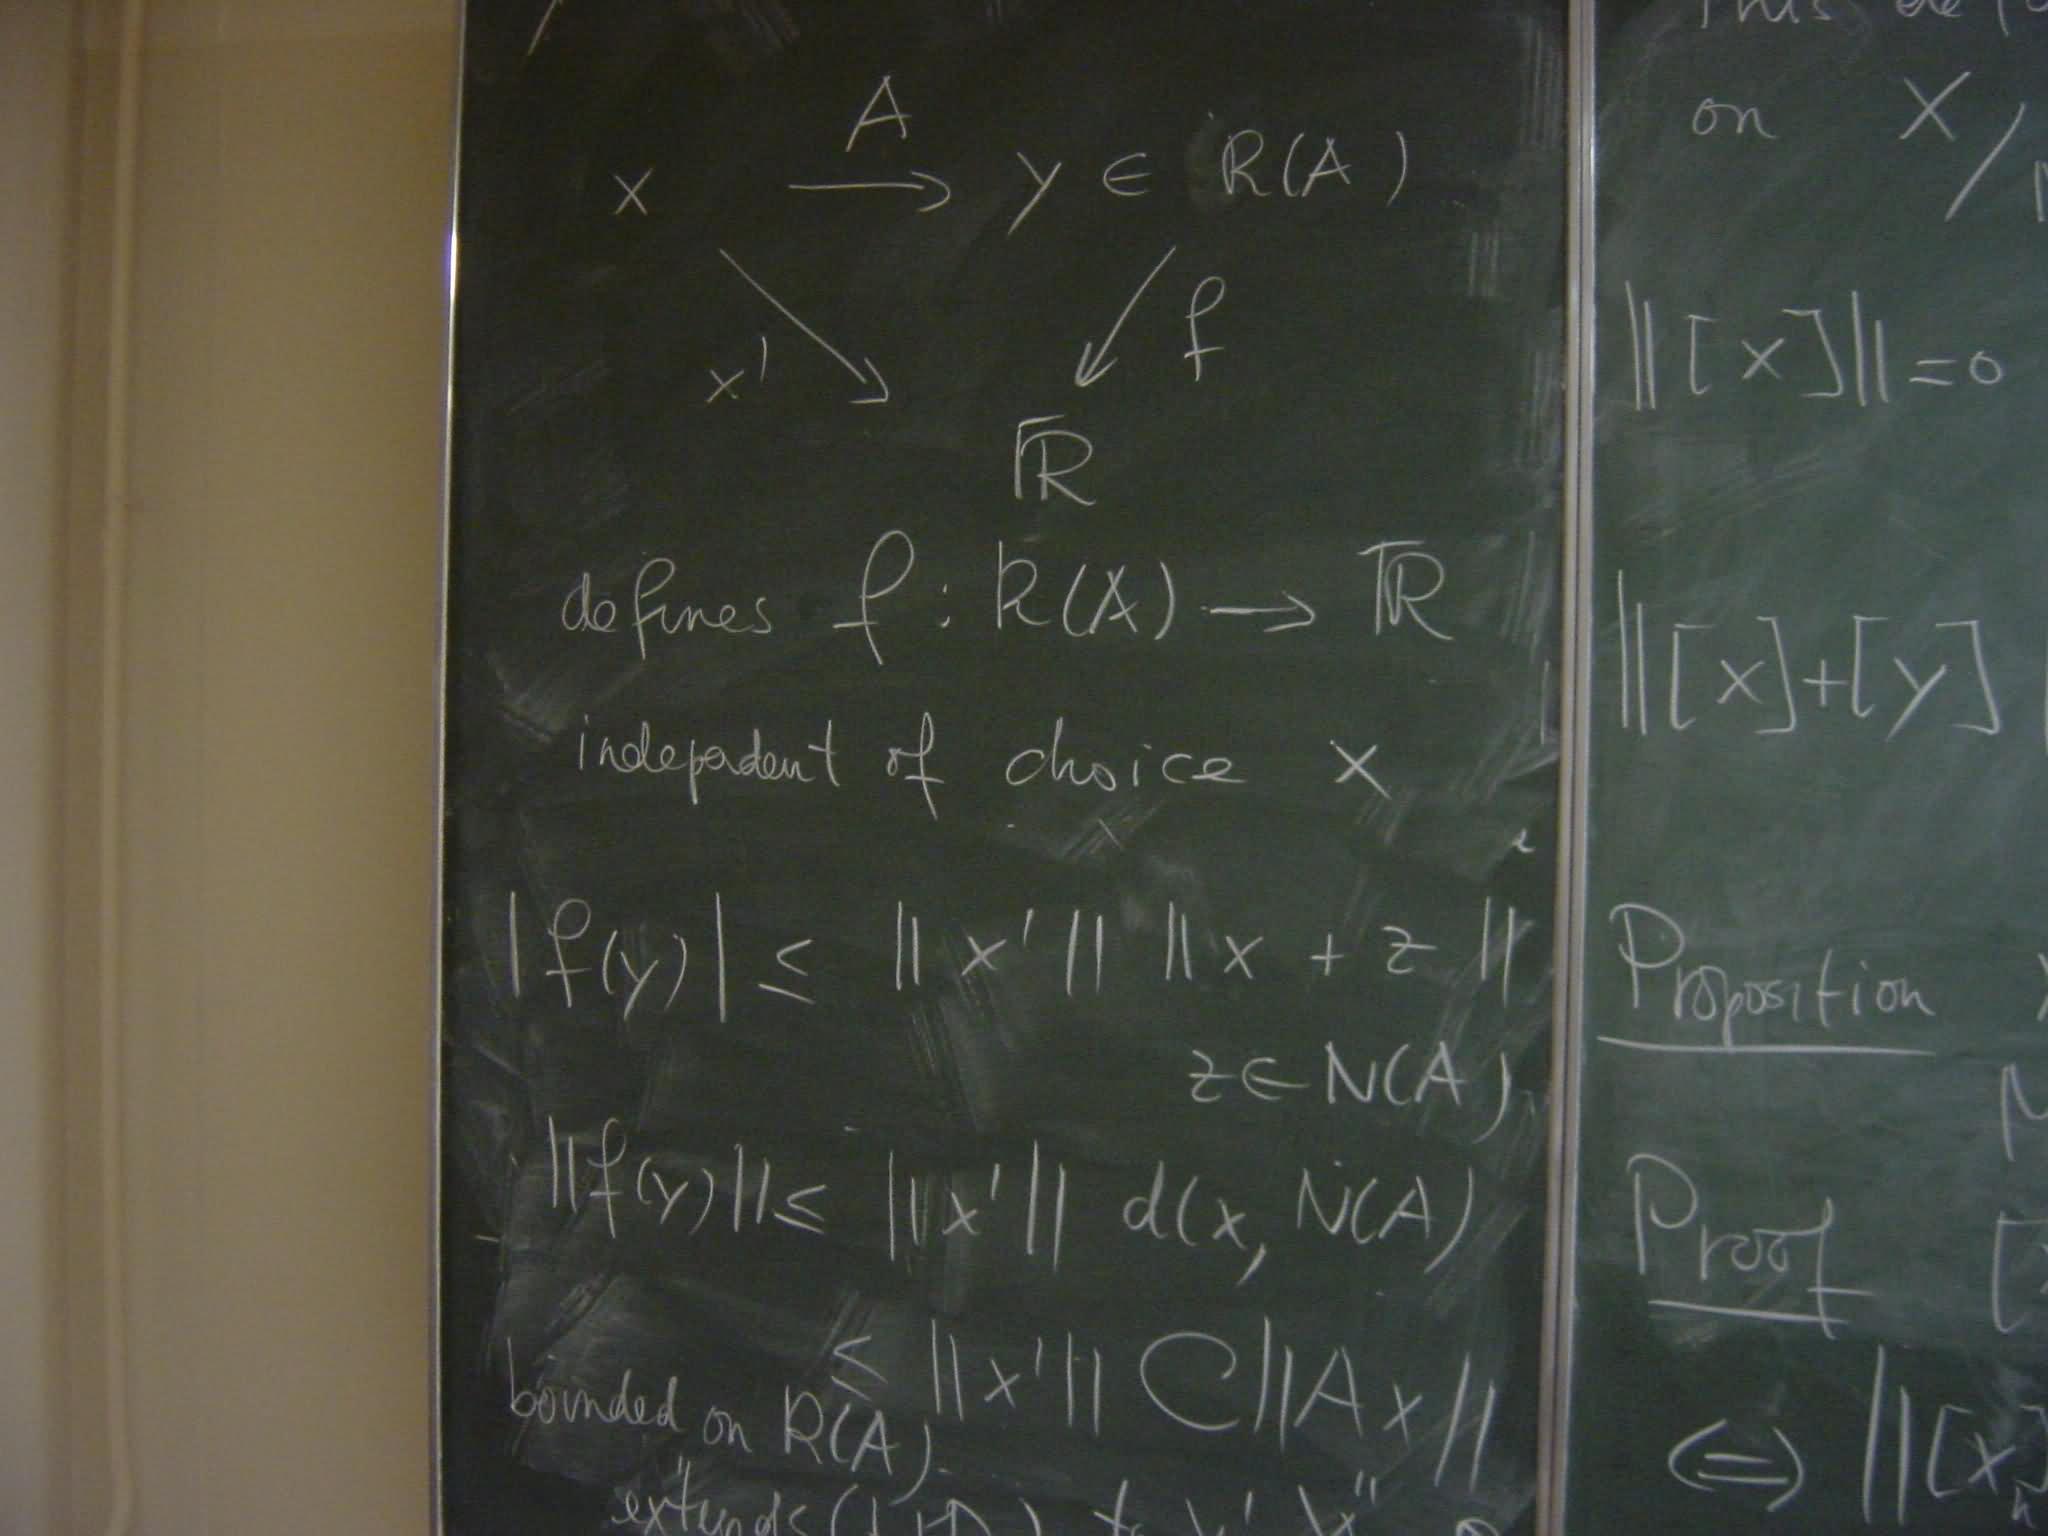 A
x → y ∈ R(A)
x' f
ℝ
defines f : R(A) → ℝ
independent of choice x
|f(y)| ≤ ||x'|| ||x + z||
z ∈ N(A)
||f(y)|| ≤ ||x'|| d(x, N(A)
≤ ||x'|| C ||Ax||
bounded on R(A)
"extends
This
on X/
||[x]|| = 0
||[x]+[y]
Proposition
Proof
⇔ ||[x